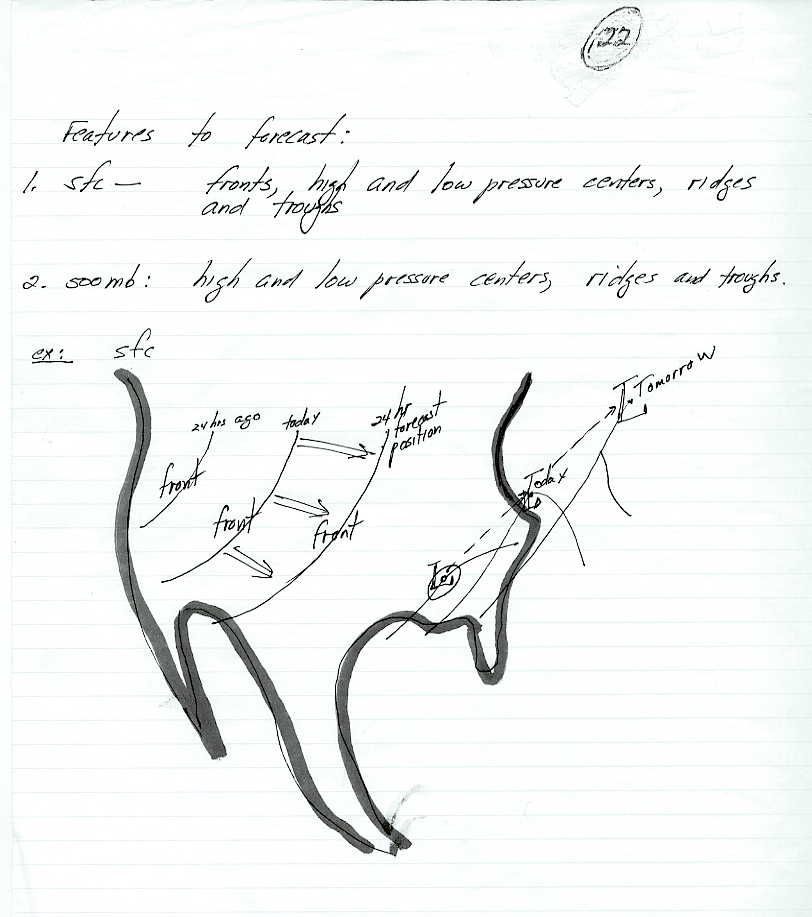 22
Features to forecast:
1. sfc – fronts, high and low pressure centers, ridges
and troughs
2. 500mb: high and low pressure centers, ridges and troughs.
ex: sfc
24 hrs ago
today
24 hr
forecast
position
front
front
front
Tomorrow
Today